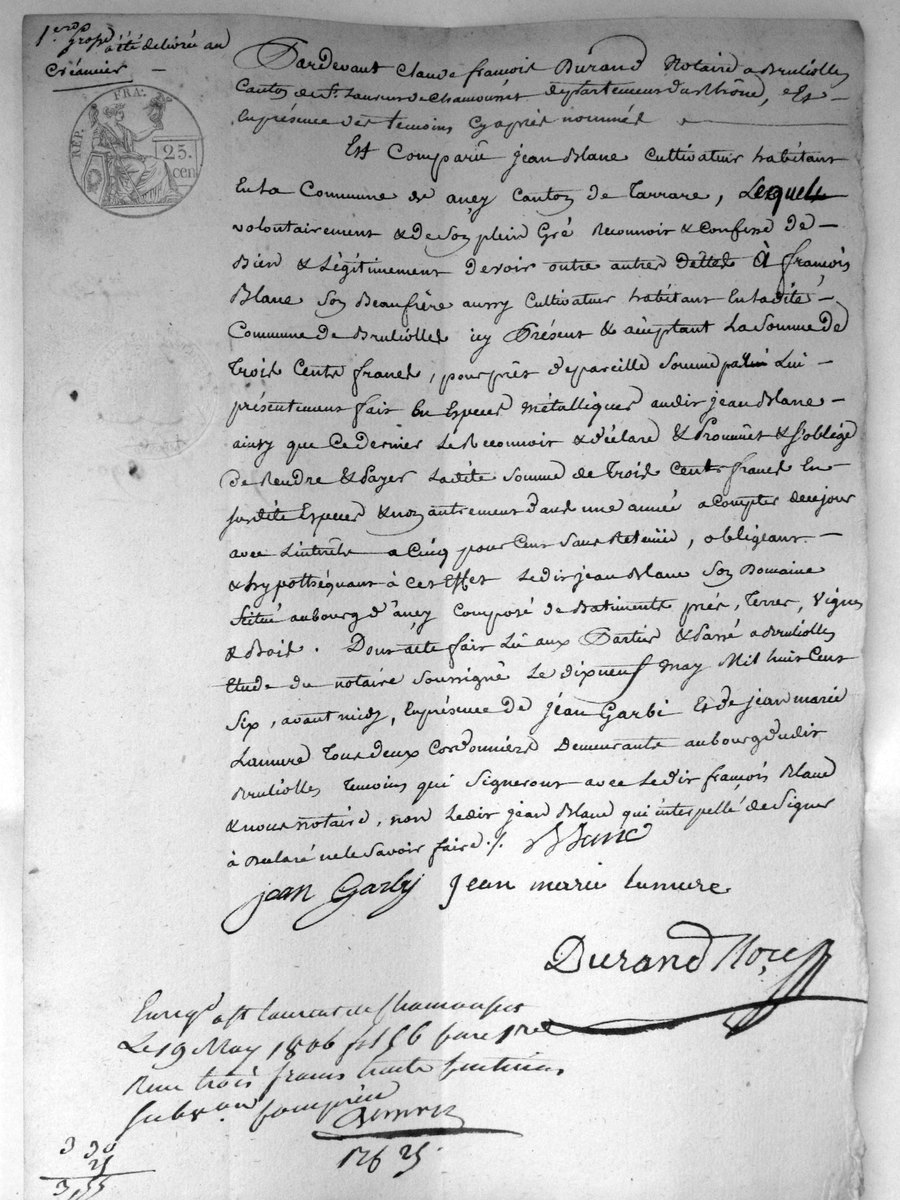 1ere grosse
a été délivrée au
Créancier
REP. FRA.
25.
cen
Pardevant Claude françois Durand Notaire a Brulliolles
Canton de St. Laurent de Chamousset département du Rhône, & Es
En présence des temoins Cy après nommés
Est Comparû jean Blanc Cultivateur habitant
En La Commune de ançy Canton de Tarrare, Lequel
volontairement & de Son plein Gré Reconnoit & Confesse De
Bien & Légitimement Devoir outre autres Dettes À françois
Blanc Son Beaufrère aussy Cultivateur habitant En Ladite
Commune de Brulliolles icy Présent & acceptant La Somme De
Trois Cents francs, pour prêt de pareille Somme Lui
présentement fait En Especes Métalliques audit jean Blanc
ainsy que Ce dernier Le Reconnoit & déclare & Promêt & S'oblige
De Rendre & Payer Ladite Somme de Trois Cents francs En
Susdite Especes & non autrement Dans une année a Compter de ce jour
avec L'intérêts a Cinq pour Cent Sans Retenüe, obligeant
& hypothéquant à Cet Effet Ledit jean Blanc Son Domaine
Situé au bourg d'ançy Composé de Batiments prés, Terres, Vignes
& Bois. Dont acte fait Lû aux Parties & Passé a Brulliolles
Etude du notaire Soussigné Le dixneuf may Mil huit Cent
Six, avant midy, En présence De Jean Garbi Et de jean marie
Lamure Tous deux Cordonniers Demeurants au bourg dudit
Brulliolles Temoins qui Signeront avec Ledit françois Blanc
& nous notaire, non Ledit jean Blanc qui interpellé de Signer
à Déclaré ne le Savoir faire ./. Blanc
jean Garby Jean marie lamure
Durand Nore
Enregé. a St laurent de Chamousset
Le 19 May 1806 fol 56 1re
Reçu trois francs trente Centimes
Subvon Comprise
3 30
25
3,55
126 25.